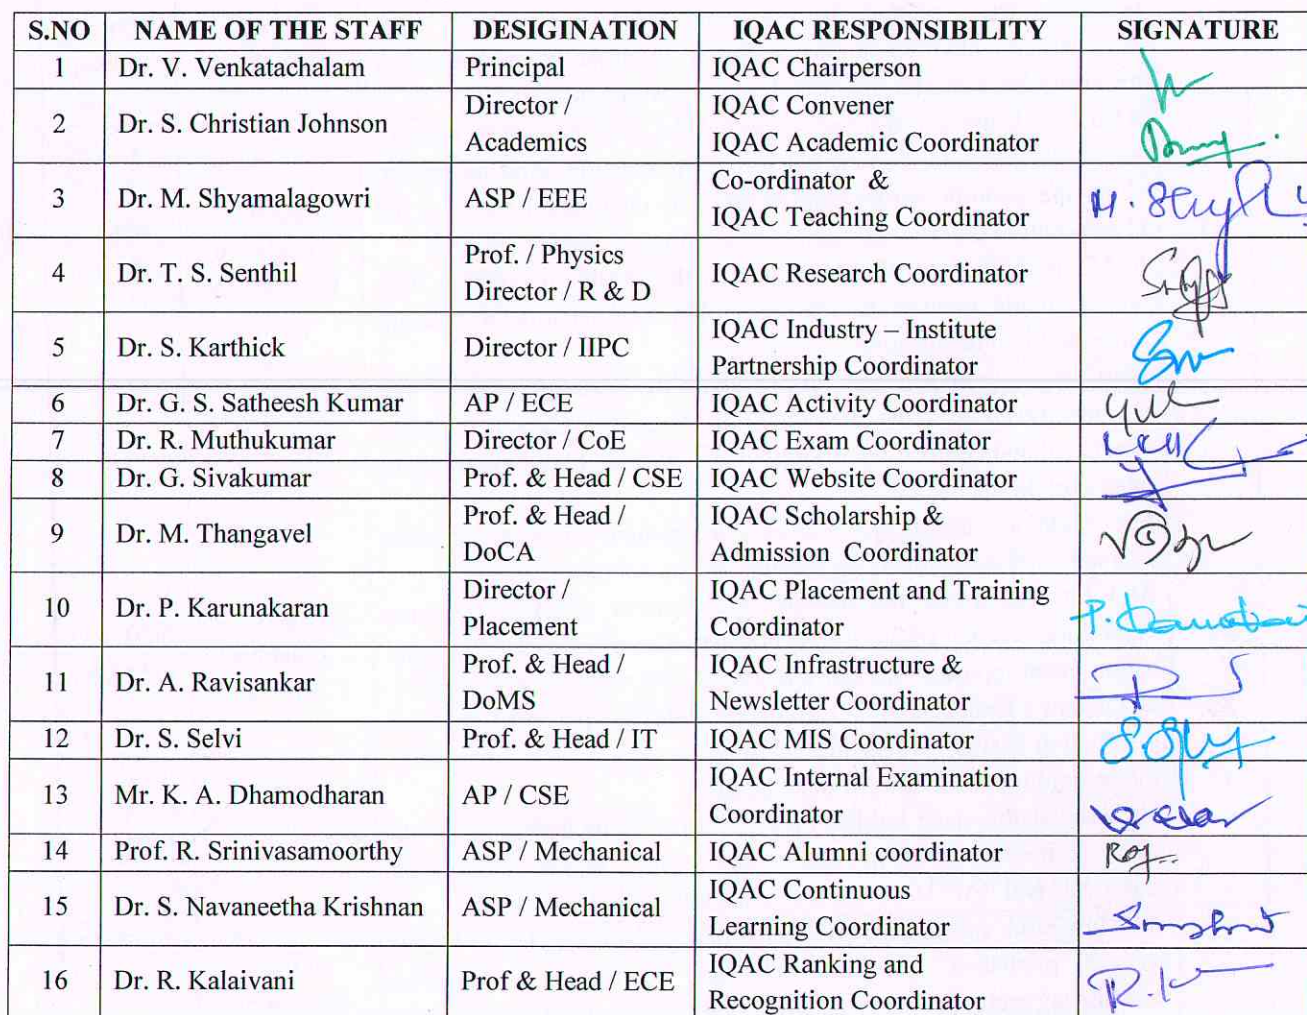 S.NO NAME OF THE STAFF DESIGINATION IQAC RESPONSIBILITY SIGNATURE
1 Dr. V. Venkatachalam Principal IQAC Chairperson
2 Dr. S. Christian Johnson Director / IQAC Convener
Academics IQAC Academic Coordinator
3 Dr. M. Shyamalagowri ASP / EEE Co-ordinator &
IQAC Teaching Coordinator
4 Dr. T. S. Senthil Prof. / Physics IQAC Research Coordinator
Director / R & D
5 Dr. S. Karthick Director / IIPC IQAC Industry – Institute
Partnership Coordinator
6 Dr. G. S. Satheesh Kumar AP / ECE IQAC Activity Coordinator
7 Dr. R. Muthukumar Director / CoE IQAC Exam Coordinator
8 Dr. G. Sivakumar Prof. & Head / CSE IQAC Website Coordinator
9 Dr. M. Thangavel Prof. & Head / IQAC Scholarship &
DoCA Admission Coordinator
10 Dr. P. Karunakaran Director / IQAC Placement and Training
Placement Coordinator
11 Dr. A. Ravisankar Prof. & Head / IQAC Infrastructure &
DoMS Newsletter Coordinator
12 Dr. S. Selvi Prof. & Head / IT IQAC MIS Coordinator
13 Mr. K. A. Dhamodharan AP / CSE IQAC Internal Examination
Coordinator
14 Prof. R. Srinivasamoorthy ASP / Mechanical IQAC Alumni coordinator
15 Dr. S. Navaneetha Krishnan ASP / Mechanical IQAC Continuous
Learning Coordinator
16 Dr. R. Kalaivani Prof & Head / ECE IQAC Ranking and
Recognition Coordinator